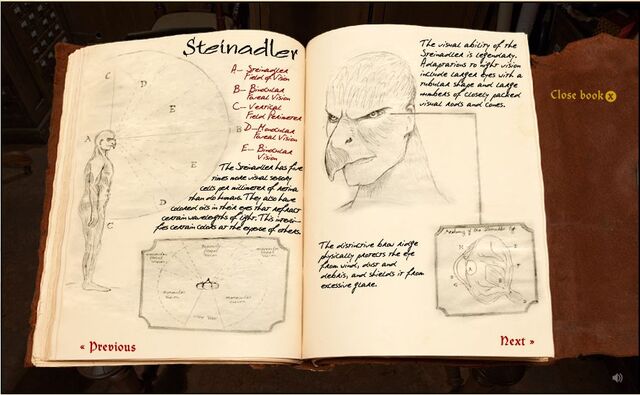 Steinadler
A— Steinadler
Field of Vision
B— Binocular
Foveal Vision
C— Vertical
Field Perimeter
D— Monocular
Vision
E— Binocular
Vision
C
D
E
A
B
E
D
C
The Steinadler has five
times more visual sensory
cells per millimeter of retina
than do humans. They also have
colored oils in their eyes that refract
certain wavelengths of light. This intensi-
fies certain colors at the expense of others.
« Previous
The visual ability of the
Steinadler is legendary.
Adaptations to night vision
include larger eyes with a
tubular shape and large
numbers of closely packed
visual rods and cones.
Close book x
The distinctive brow ridge
physically protects the eye
from wind, dust and
debris, and shields it from
excessive glare.
Anatomy of the Steinadler Eye
Next »